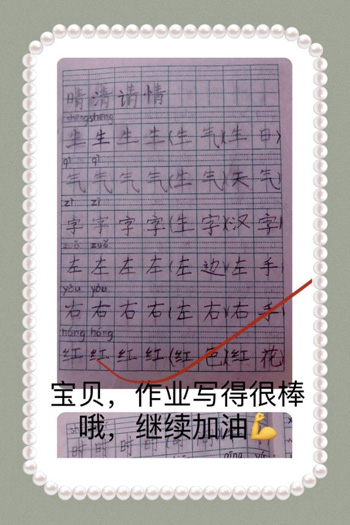 晴清请情
shēng shēng
生生生生(生气)(生日)
qì qì
气气气气(生气)(天气)
zì zì
字字字字(生字)(汉字)
zuǒ zuǒ
左左左左(左边)(左手)
yòu yòu
右右右右(右边)(右手)
hóng hóng
红红红红(红色)(红花)
宝贝，作业写得很棒
哦，继续加油💪
时时时